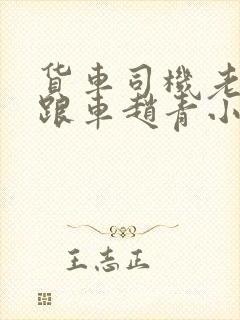 货车司機老
跟車趙青小
王志正